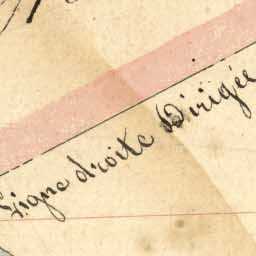 Ligne droite Dirigée